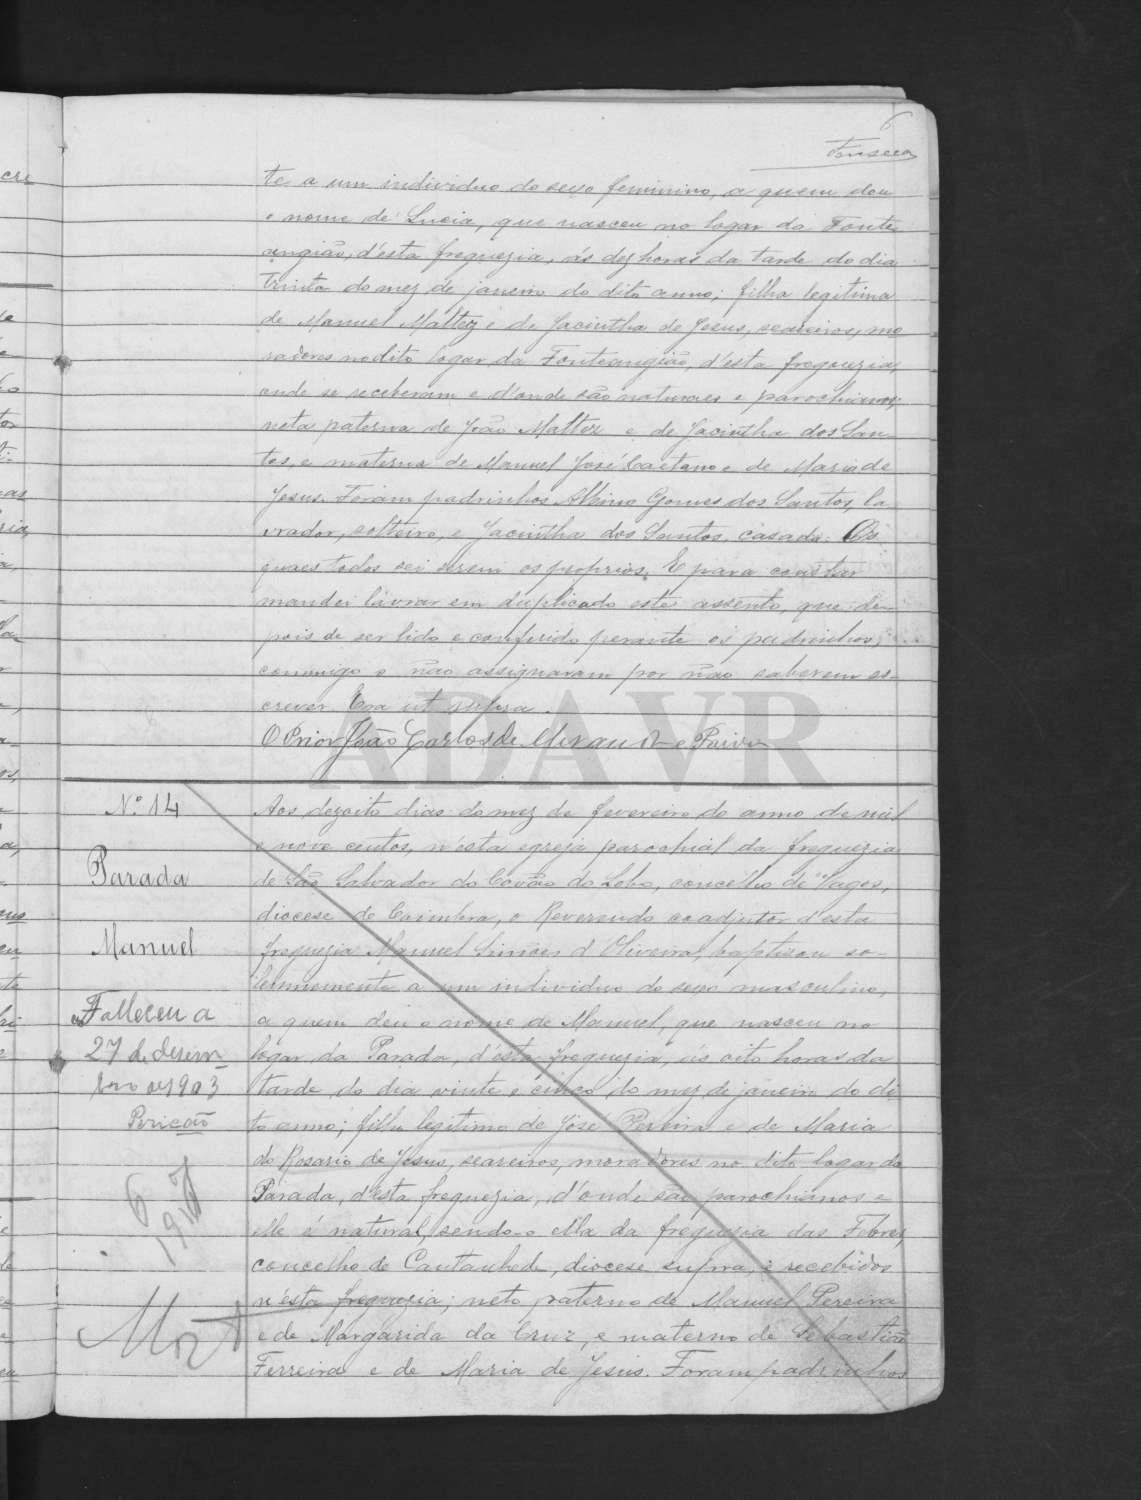 6
Fonseca
te a um individuo do sexo feminino, a quem deu
o nome de Lucia, que nasceu no logar da Fonte
angião, d'esta freguezia, ás dez horas da tarde do dia
trinta do mez de janeiro do dito anno; filha legitima
de Manuel Maltez e de Jacintha de Jesus, seareiros, mo
radores no dito logar da Fonteangião, d'esta freguezia,
onde se receberam e d'onde são naturaes e parochianos;
neta paterna de João Maltez e de Jacintha dos San
tos, e materna de Manuel José Caetano e de Maria de
Jesus. Foram padrinhos Albino Gomes dos Santos, la
vrador, solteiro, e Jacintha dos Santos, casada. Os
quaes todos sei serem os proprios. E para constar
mandei lavrar em duplicado este assento, que de-
pois de ser lido e conferido perante os padrinhos,
commigo o não assignaram por não saberem es-
crever. Era ut supra.
O Prior João Carlos de Miranda e Paiva
ADAVR
Nº 14
Parada
Manuel
Falleceu a
27 de dezem
bro de 1903
6
1917
Mort
Aos dezoito dias do mez de fevereiro do anno de mil
e nove centos, n'esta egreja parochial da freguezia
de São Salvador do Covão do Lobo, concelho de Vagos,
diocese de Coimbra, o Reverendo coadjutor d'esta
freguezia Manuel Simões d'Oliveira, baptisou so-
lemnemente a um individuo do sexo masculino,
a quem deu o nome de Manuel, que nasceu no
logar da Parada, d'esta freguezia, ás oito horas da
tarde do dia vinte e cinco do mez de janeiro do di
to anno; filho legitimo de José Pereira e de Maria
do Rosario de Jesus, seareiros, moradores no dito logar da
Parada, d'esta freguezia, d'onde são parochianos e
elle é natural, sendo-o ella da freguezia das Febres,
concelho de Cantanhede, diocese supra, e recebidos
n'esta freguezia; neto paterno de Manuel Pereira
e de Margarida da Cruz, e materno de Sebastião
Ferreira e de Maria de Jesus. Foram padrinhos